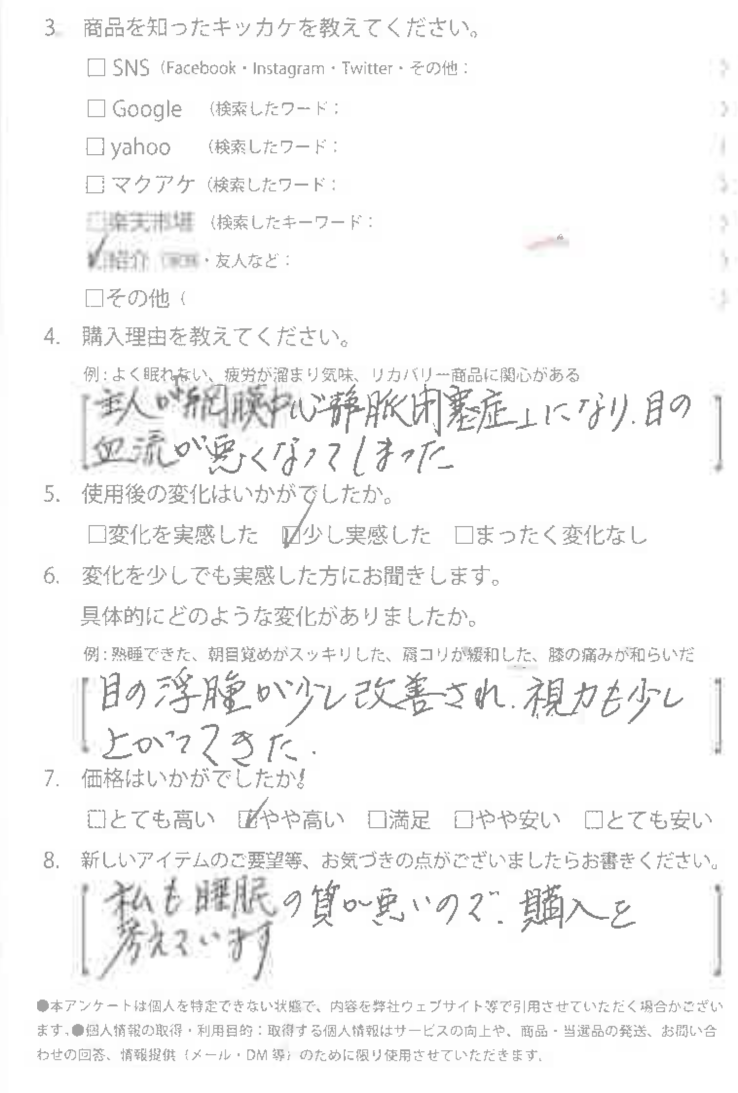 3. 商品を知ったキッカケを教えてください。
□ SNS（Facebook・Instagram・Twitter・その他：
□ Google （検索したワード：
□ yahoo （検索したワード：
□ マクアケ（検索したワード：
□楽天市場（検索したキーワード：
☑紹介（ ・友人など：
□その他（
4. 購入理由を教えてください。
例：よく眠れない、疲労が溜まり気味、リカバリー商品に関心がある
主人が「網膜中心静脈閉塞症」になり、目の
血流が悪くなってしまった
5. 使用後の変化はいかがでしたか。
□変化を実感した ☑少し実感した □まったく変化なし
6. 変化を少しでも実感した方にお聞きします。
具体的にどのような変化がありましたか。
例：熟睡できた、朝目覚めがスッキリした、肩コリが緩和した、膝の痛みが和らいだ
目の浮腫が少し改善され、視力も少し
上がってきた.
7. 価格はいかがでしたか。
□とても高い ☑やや高い □満足 □やや安い □とても安い
8. 新しいアイテムのご要望等、お気づきの点がございましたらお書きください。
私も睡眠の質が悪いので、購入を
考えています
●本アンケートは個人を特定できない状態で、内容を弊社ウェブサイト等で引用させていただく場合がござい
ます。●個人情報の取得・利用目的：取得する個人情報はサービスの向上や、商品・当選品の発送、お問い合
わせの回答、情報提供（メール・DM 等）のために限り使用させていただきます。